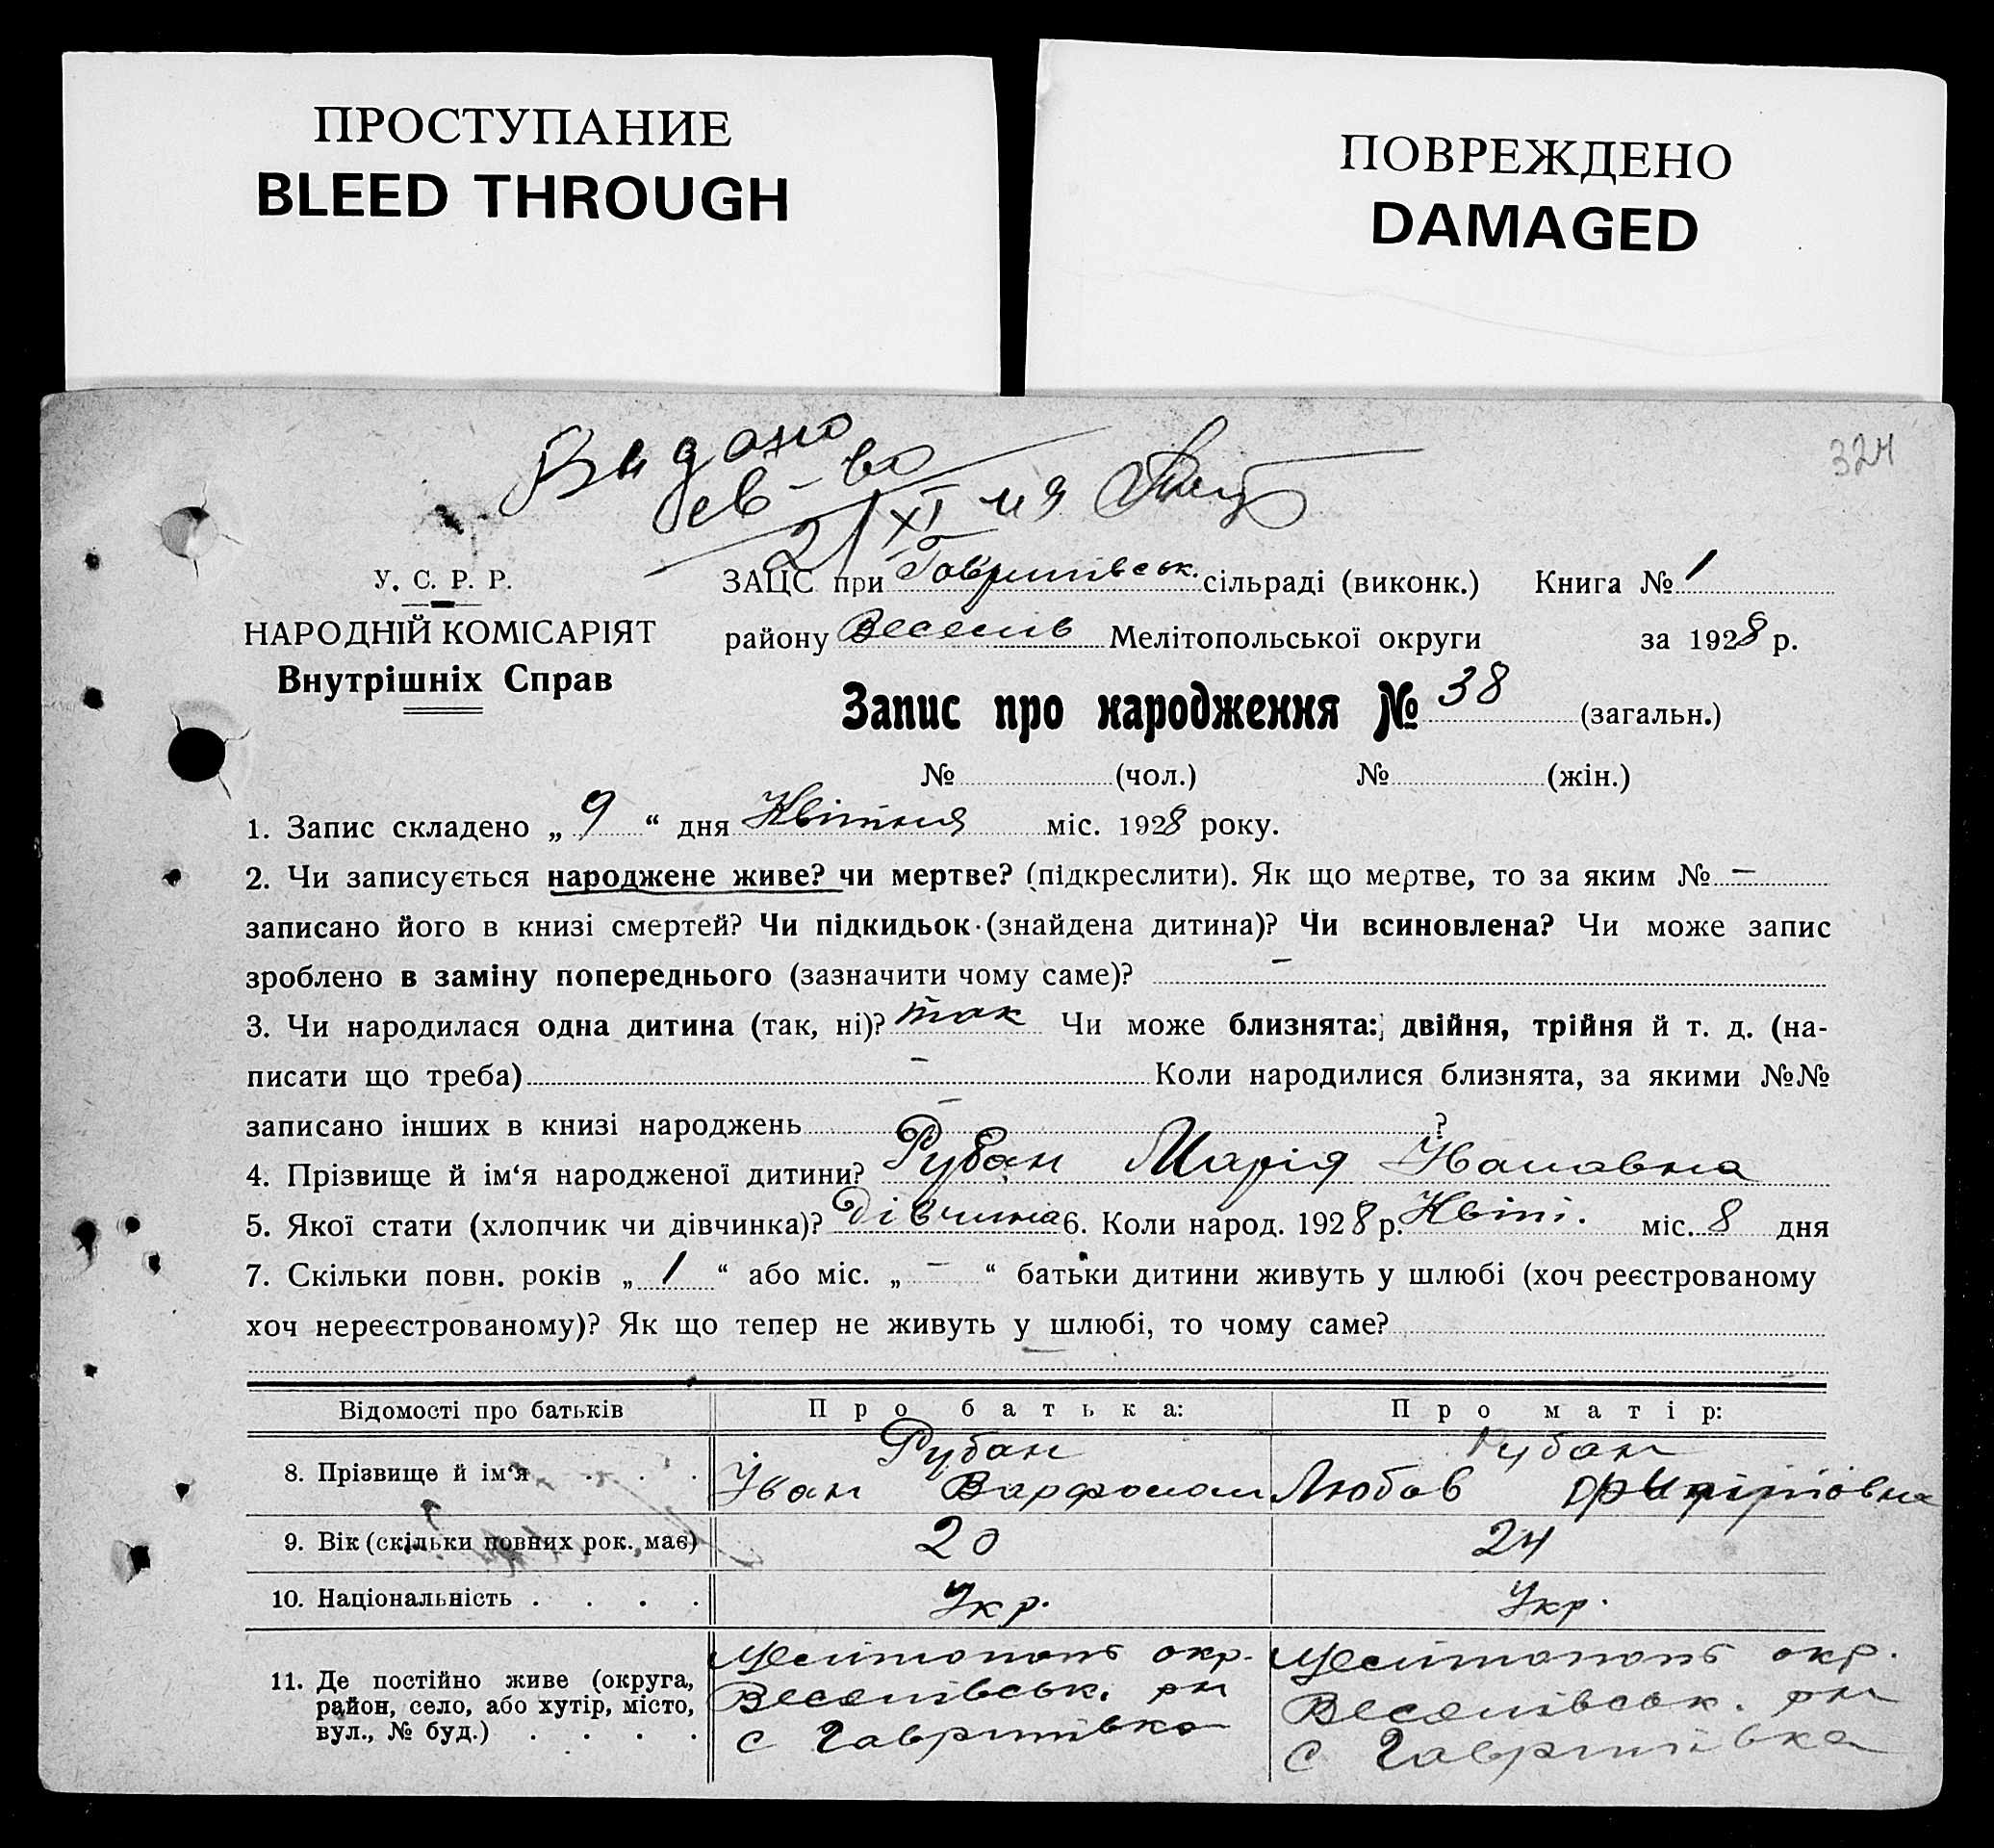 ПРОСТУПАНИЕ
BLEED THROUGH
ПОВРЕЖДЕНО
DAMAGED
324
Видано
св-во
21/XI
У. С. Р. Р.
НАРОДНІЙ КОМІСАРІЯТ
Внутрішніх Справ
ЗАЦС при Гаврилівськ. сільраді (виконк.) Книга № 1
району Веселів Мелітопольської округи за 1928 р.
Запис про народження № 38 (загальн.)
№ (чол.) № (жін.)
1. Запис складено „ 9 “ дня Квітня міс. 1928 року.
2. Чи записується народжене живе? чи мертве? (підкреслити). Як що мертве, то за яким № –
записано його в книзі смертей? Чи підкидьок (знайдена дитина)? Чи всиновлена? Чи може запис
зроблено в заміну попереднього (зазначити чому саме)? –
3. Чи народилася одна дитина (так, ні)? так Чи може близнята: двійня, трійня й т. д. (на-
писати що треба) – Коли народилися близнята, за якими №№
записано інших в книзі народжень – ?
4. Прізвище й ім‘я народженої дитини? Рубан Марія Іванавна
5. Якої стати (хлопчик чи дівчинка)? Дівчина 6. Коли народ. 1928 р. Квіт. міс. 8 дня
7. Скільки повн. років „ 1 “ або міс. „ – “ батьки дитини живуть у шлюбі (хоч реєстрованому
хоч нереєстрованому)? Як що тепер не живуть у шлюбі, то чому саме?
Відомості про батьків Про батька: Про матір:
Рубан Рубан
8. Прізвище й ім‘я . . . Іван Варфолом Любов
9. Вік (скільки повних рок. має) 20 24
10. Національність . . . . Укр. Укр.
11. Де постійно живе (округа, Мелітополь окр. Мелітополь окр.
район, село, або хутір, місто, Веселівськ. рн Веселівськ. рн
вул., № буд.) . . . . с Гаврилівка с Гаврилівка